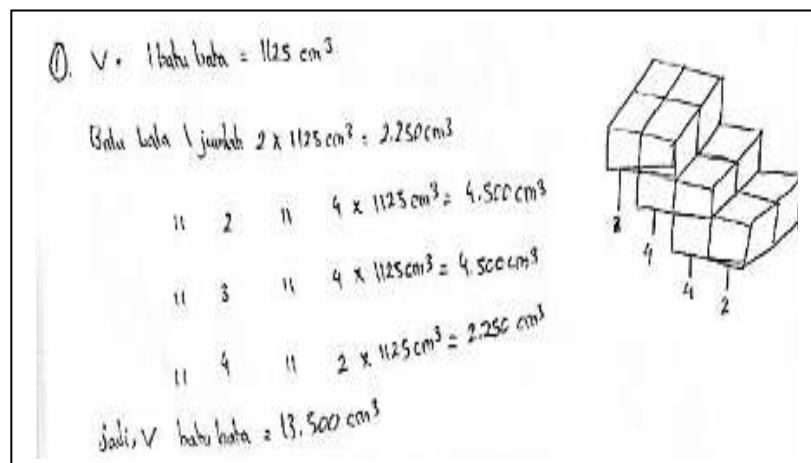 ①. V. 1 batu bata = 1125 cm³
Batu bata 1 jumlah 2 x 1125 cm³ = 2.250 cm³
" 2 " 4 x 1125 cm³ = 4.500 cm³
" 3 " 4 x 1125 cm³ = 4.500 cm³
" 4 " 2 x 1125 cm³ = 2.250 cm³
jadi, V batu bata = 13.500 cm³
4
4
2